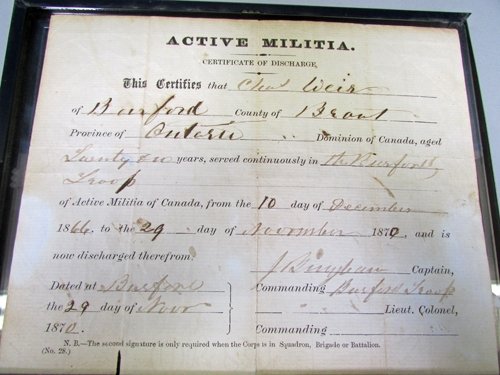 ACTIVE MILITIA.
CERTIFICATE OF DISCHARGE,
This Certifies that Chas Weir
of Burford County of Brant
Province of Ontario Dominion of Canada, aged
Twenty years, served continuously in the Burford
Troop
of Active Militia of Canada, from the 10 day of December
1866, to the 29 day of November 1870, and is
now discharged therefrom.
J Bingham Captain,
Dated at Burford Commanding Burford Troop
the 29 day of Novr Lieut. Colonel,
1870. Commanding
N. B.—The second signature is only required when the Corps is in Squadron, Brigade or Battalion.
(No. 28.)